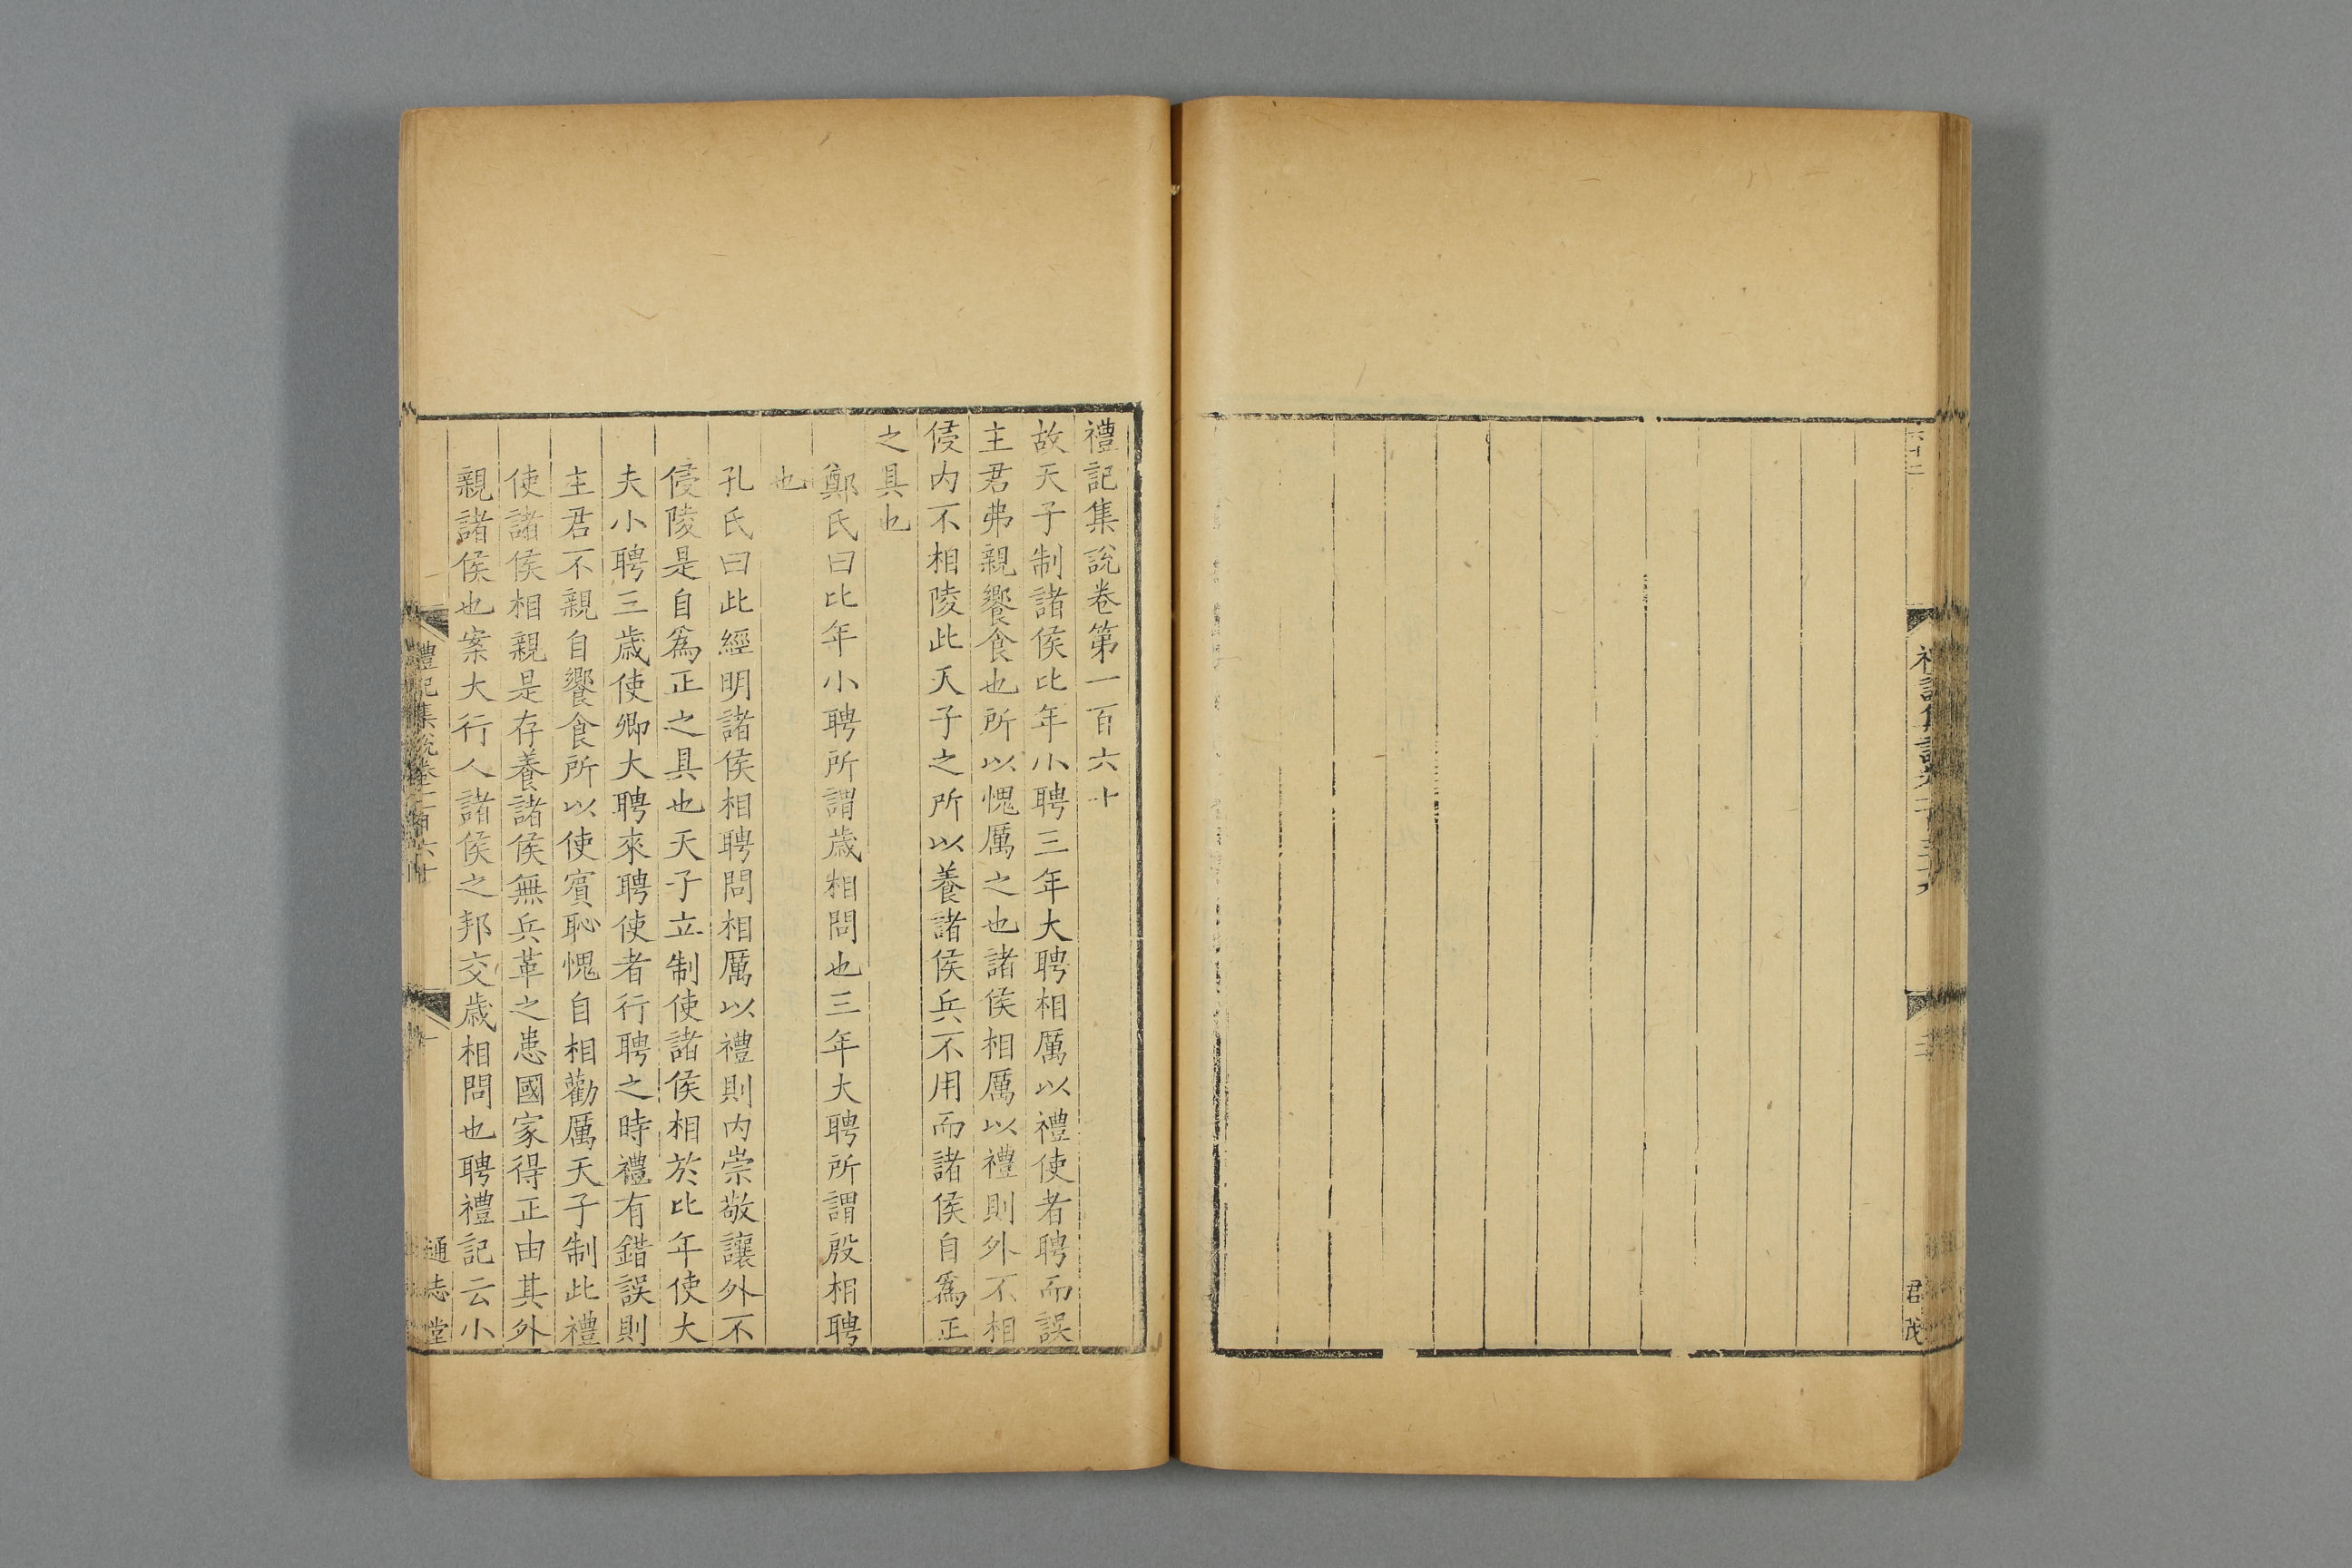 禮記集說卷第一百六十
故天子制諸侯比年小聘三年大聘相厲以禮使者聘而誤
主君弗親饗食也所以愧厲之也諸侯相厲以禮則外不相
侵內不相陵此天子之所以養諸侯兵不用而諸侯自爲正
之具也
鄭氏曰比年小聘所謂歲相問也三年大聘所謂殷相聘
也
孔氏曰此經明諸侯相聘問相厲以禮則內崇敬讓外不
侵陵是自爲正之具也天子立制使諸侯相於比年使大
夫小聘三歲使卿大聘來聘使者行聘之時禮有錯誤則
主君不親自饗食所以使賓恥愧自相勸厲天子制此禮
使諸侯相親是存養諸侯無兵革之患國家得正由其外
親諸侯也案大行人諸侯之邦交歲相問也聘禮記云小
禮記集說卷一百六十
通志堂
君茂